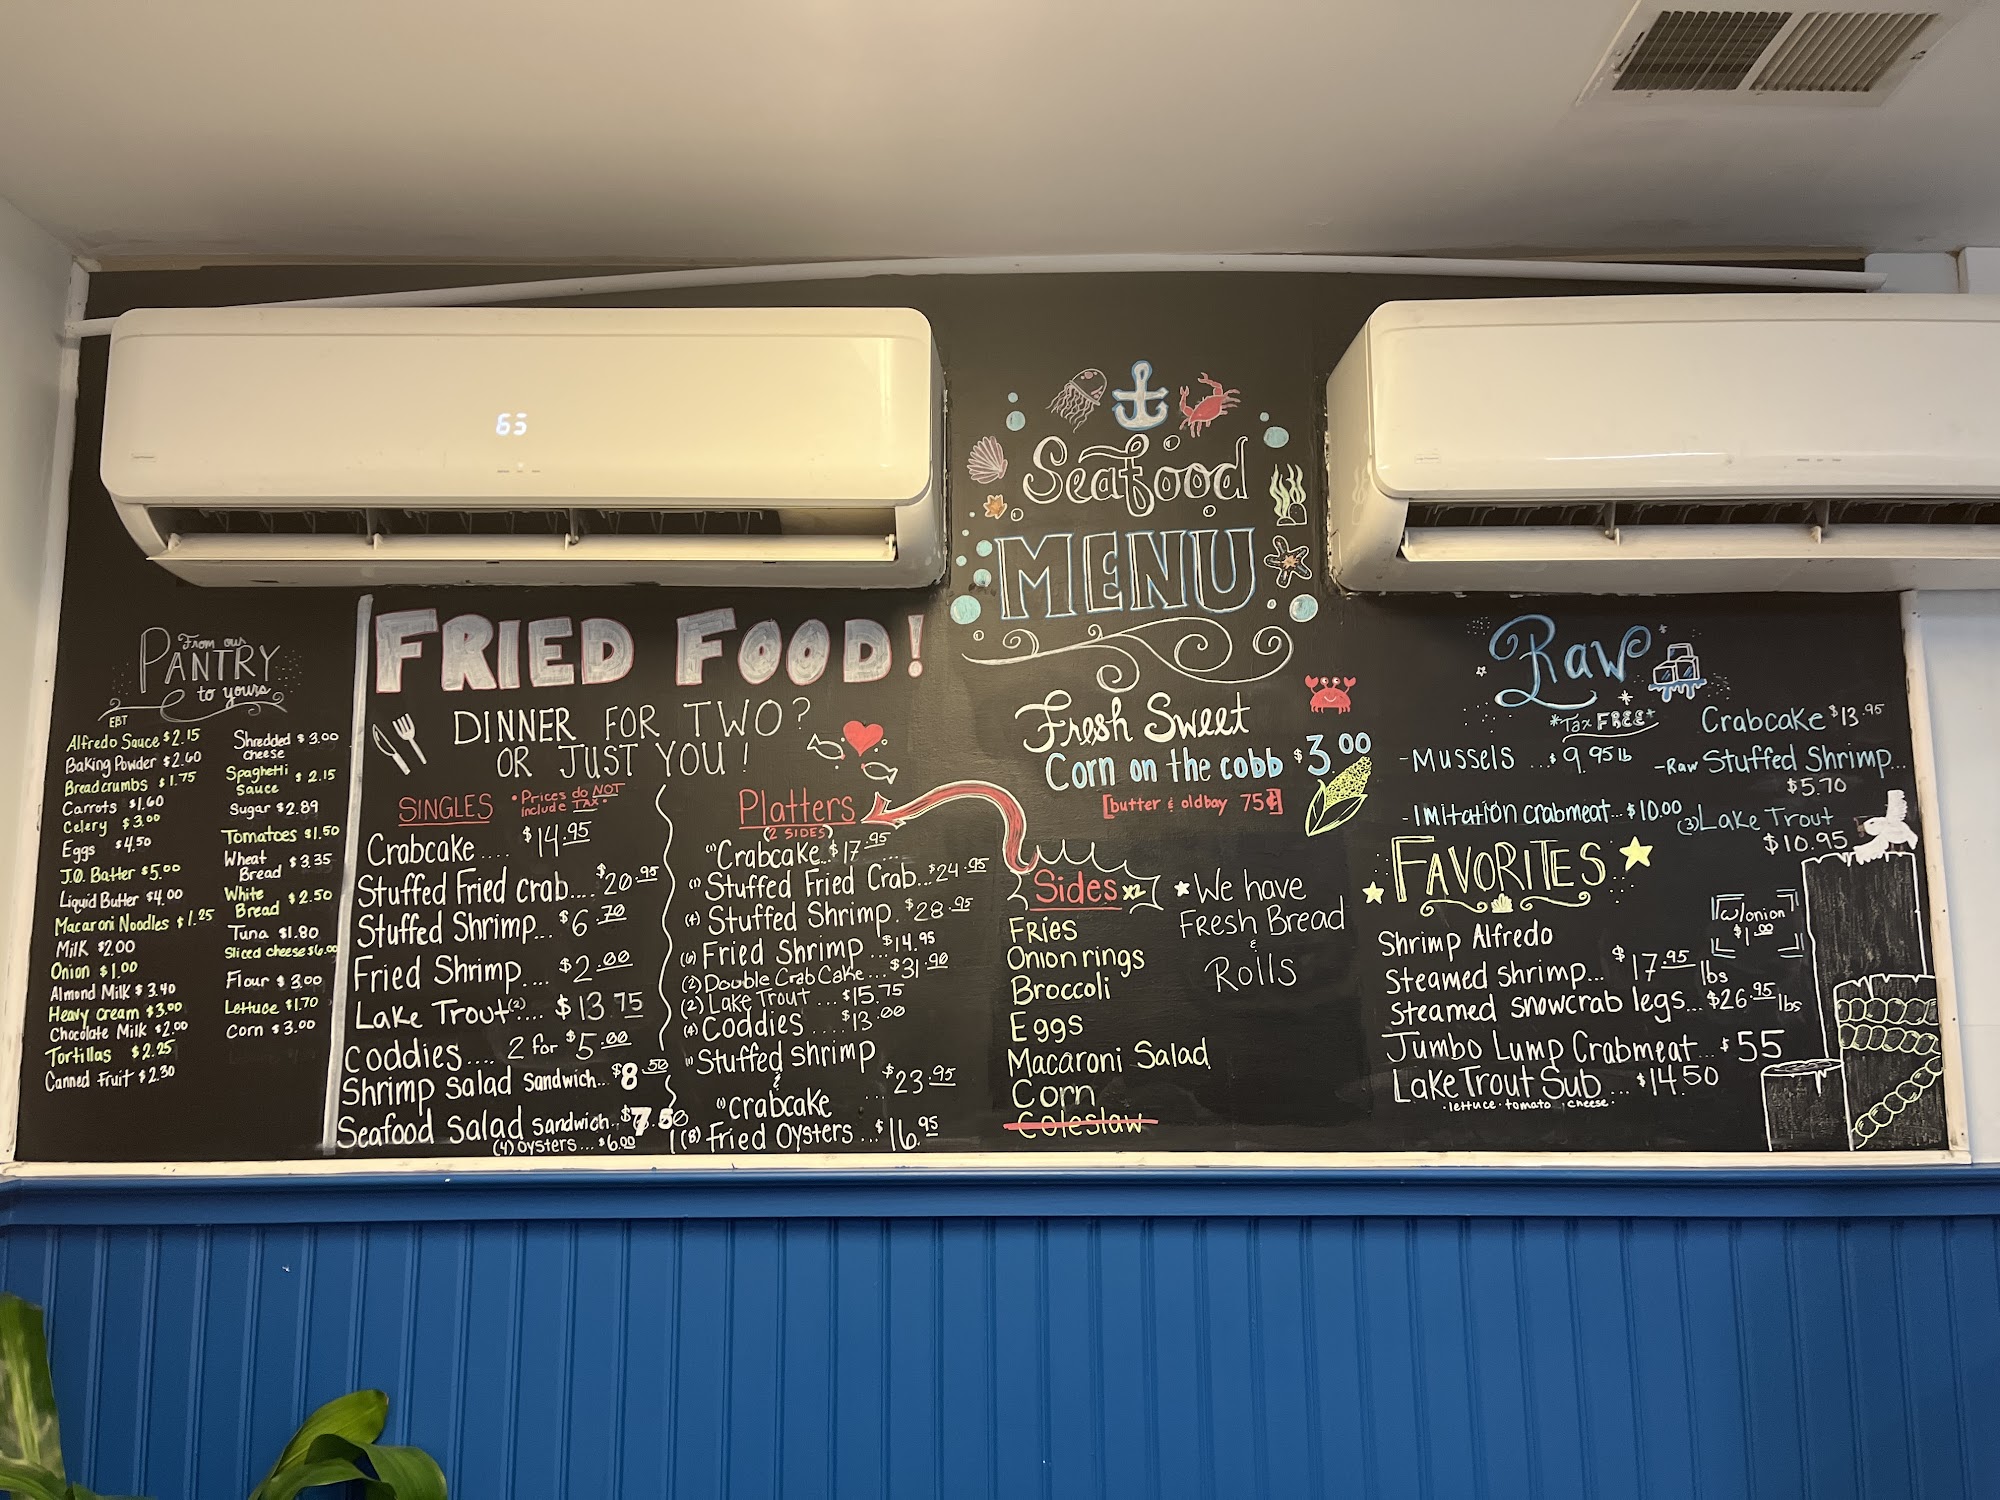 65
Seafood
MENU
From our
PANTRY
to yours
EBT
Alfredo Sauce $2.15
Baking Powder $2.60
Breadcrumbs $1.75
Carrots $1.60
Celery $3.00
Eggs $4.50
J.O. Batter $5.00
Liquid Butter $4.00
Macaroni Noodles $1.25
Milk $2.00
Onion $1.00
Almond Milk $3.40
Heavy Cream $3.00
Chocolate Milk $2.00
Tortillas $2.25
Canned Fruit $2.30
Shredded $3.00
cheese
Spaghetti
Sauce $2.15
Sugar $2.89
Tomatoes $1.50
Wheat
Bread $3.35
White
Bread $2.50
Tuna $1.80
Sliced cheese $6.00
Flour $3.00
Lettuce $1.70
Corn $3.00
FRIED FOOD!
DINNER FOR TWO?
OR JUST YOU!
SINGLES
*Prices do NOT
Include TAX*
Crabcake.... $14.95
Stuffed Fried crab.... $20.95
Stuffed Shrimp... $6.70
Fried Shrimp.... $2.00
Lake Trout(2).... $13.75
coddies.... 2 for $5.00
Shrimp Salad Sandwich... $8.50
Seafood Salad Sandwich... $7.50
(4) Oysters... $6.00
Platters
(2 SIDES)
(1) Crabcake...$17.95
(1) Stuffed Fried Crab...$24.95
(4) Stuffed Shrimp. $28.95
(6) Fried Shrimp ... $14.95
(2) Double Crab Cake... $31.90
(2) Lake Trout ... $15.75
(4) Coddies .... $13.00
(1) Stuffed Shrimp
&
(1) Crabcake ... $23.95
(8) Fried Oysters ... $16.95
Fresh Sweet
Corn on the cobb $3.00
[butter & oldbay 75¢]
Sides x2
Fries
Onion rings
Broccoli
Eggs
Macaroni Salad
Corn
Coleslaw
★ We have
Fresh Bread
&
Rolls
Raw
*Tax FREE*
-Mussels ...$9.95 lb
-Imitation crabmeat... $10.00
Crabcake $13.95
-Raw Stuffed Shrimp...
$5.70
(3) Lake Trout
$10.95
FAVORITES
w/onion
$1.00
Shrimp Alfredo
Steamed Shrimp... $17.95 lbs
Steamed snowcrab legs... $26.95 lbs
Jumbo Lump Crabmeat... $55
Lake Trout Sub.... $14.50
·lettuce·tomato·cheese·